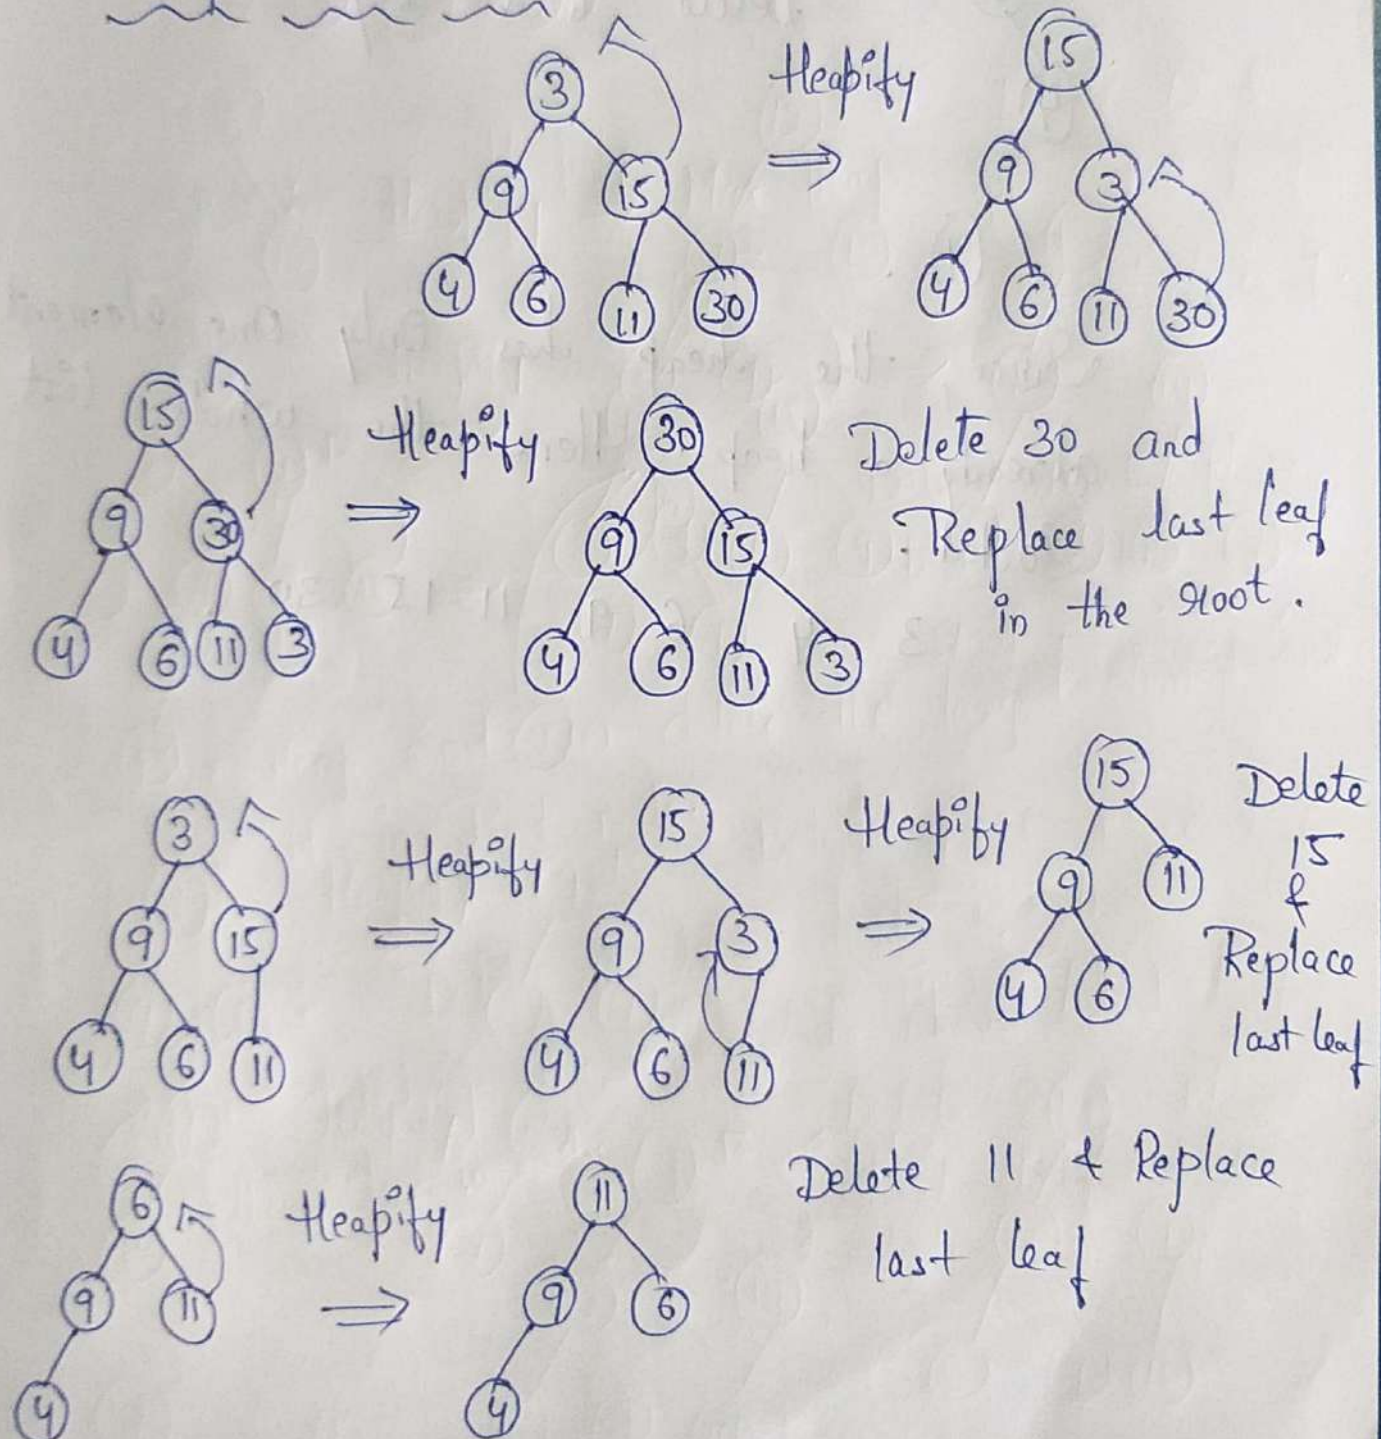 3
9 15
4 6 11 30
Heapify
⇒
15
9 3
4 6 11 30
15
9 30
4 6 11 3
Heapify
⇒
30
9 15
4 6 11 3
Delete 30 and
Replace last leaf
in the root.
3
9 15
4 6 11
Heapify
⇒
15
9 3
4 6 11
Heapify
⇒
15
9 11
4 6
Delete
15
&
Replace
last leaf
6
9 11
4
Heapify
⇒
11
9 6
4
Delete 11 & Replace
last leaf